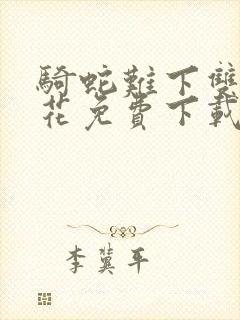 騎蛇難下雙
花免費下載
李冀平